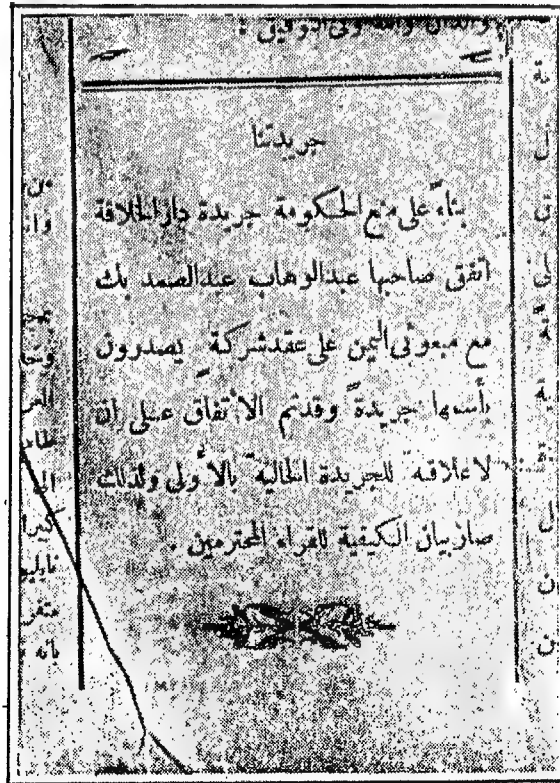 والله ولى التوفيق :
جريدتنا
بناءً على منع الحكومة جريدة دار الخلافة
اتفق صاحبها عبدالوهاب عبدالصمد بك
مع مبعوثى اليمن على عقد شركة يصدرون
بأسمها جريدة وقدتم الاتفاق على ان
لاعلاقة للجريدة الحالية بالأولى ولذلك
صار بيان الكيفية للقراء المحترمين .